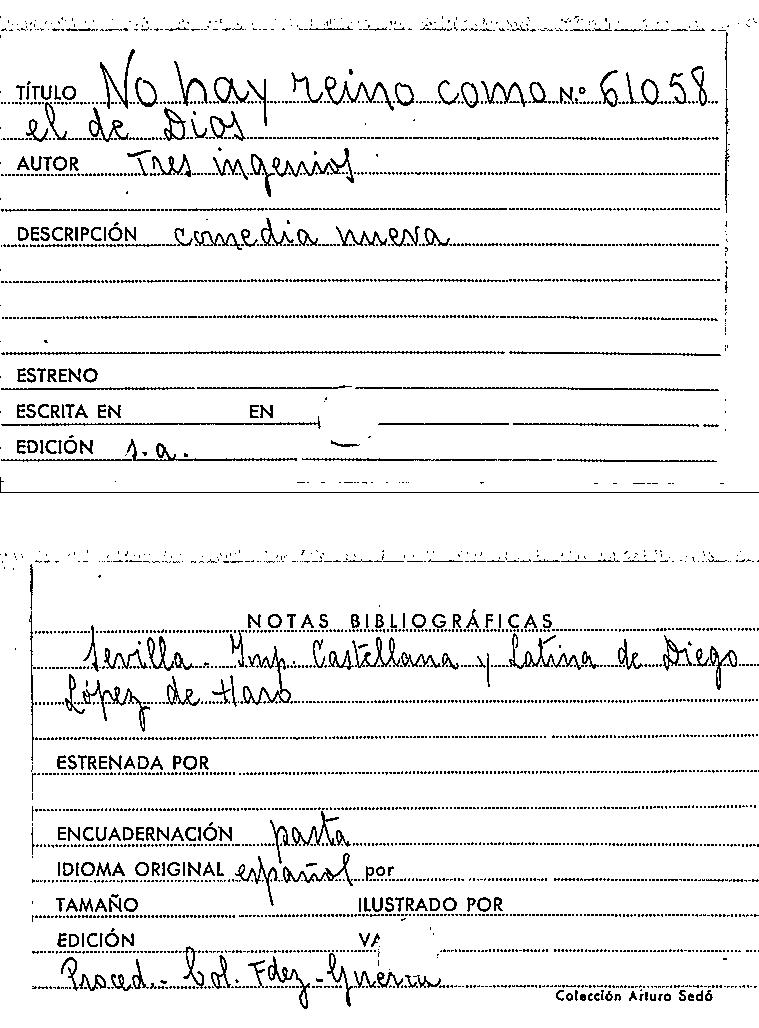 TÍTULO No hay reino como N.º 61058
el de Dios
AUTOR Tres ingenios
DESCRIPCIÓN comedia nueva
ESTRENO
ESCRITA EN EN
EDICIÓN s.a.
NOTAS BIBLIOGRÁFICAS
Sevilla - Imp. Castellana y Latina de Diego
López de Haro
ESTRENADA POR
ENCUADERNACIÓN pasta
IDIOMA ORIGINAL español por
TAMAÑO ILUSTRADO POR
EDICIÓN
Proced.- Col. Fdez-Guerra
Colección Arturo Sedó